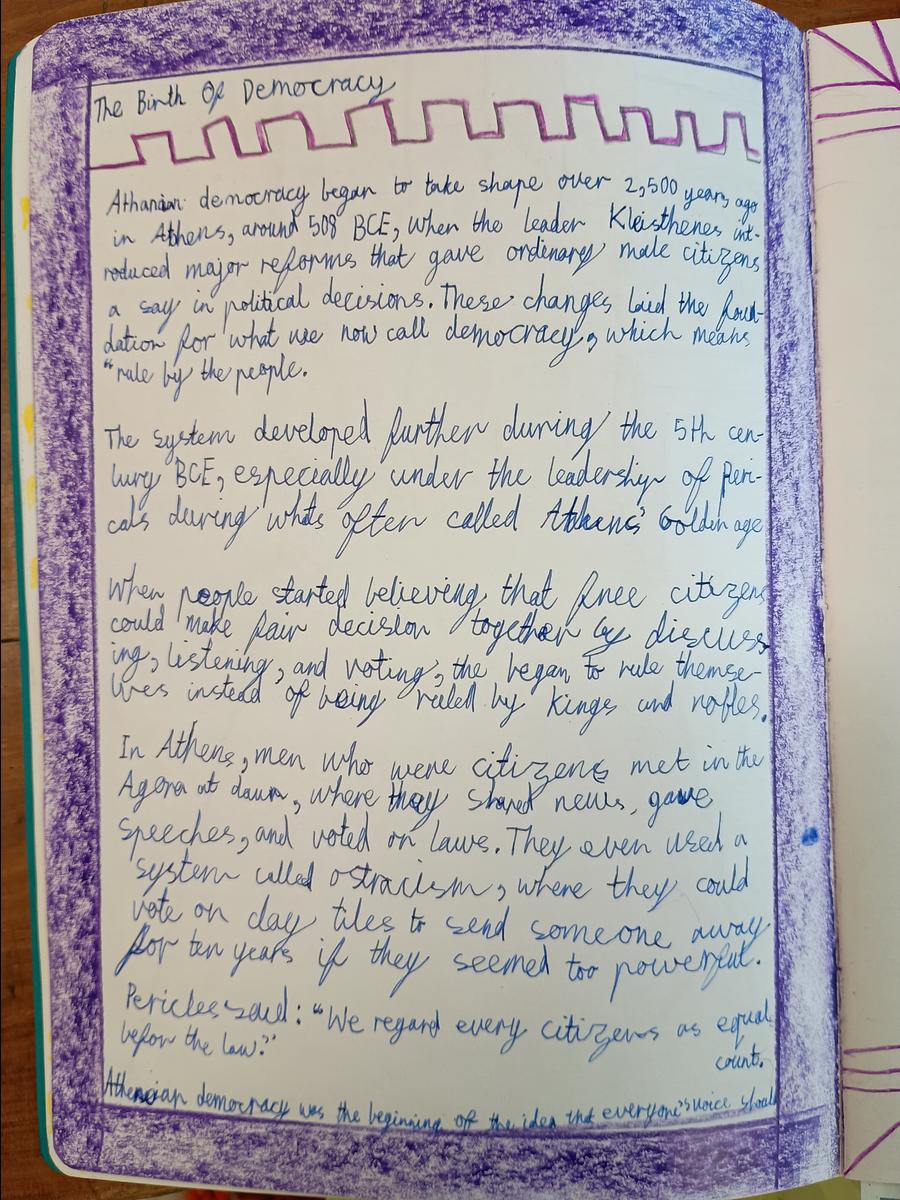 The Birth Of Democracy
Athanian democracy began to take shape over 2,500 years ago
in Athens, around 508 BCE, when the leader Kleisthenes int-
roduced major reforms that gave ordinary male citizens
a say in political decisions. These changes laid the foun-
dation for what we now call democracy, which means
"rule by the people.
The system developed further during the 5th cen-
tury BCE, especially under the leadership of Peri-
cals during whats often called Athens' Golden age
When people started believing that free citizens
could make fair decision together by discuss
ing, listening, and voting, the began to rule themse-
lves instead of being ruled by Kings and nobles.
In Athens, men who were citizens met in the
Agora at dawn, where they shared news, gave
speeches, and voted on laws. They even used a
system called ostracism, where they could
vote on clay tiles to send someone away
for ten years if they seemed too powerful.
Pericles said: "We regard every citizens as equal
before the law."
Athenian democracy was the beginning of the idea that everyone's voice should
count.